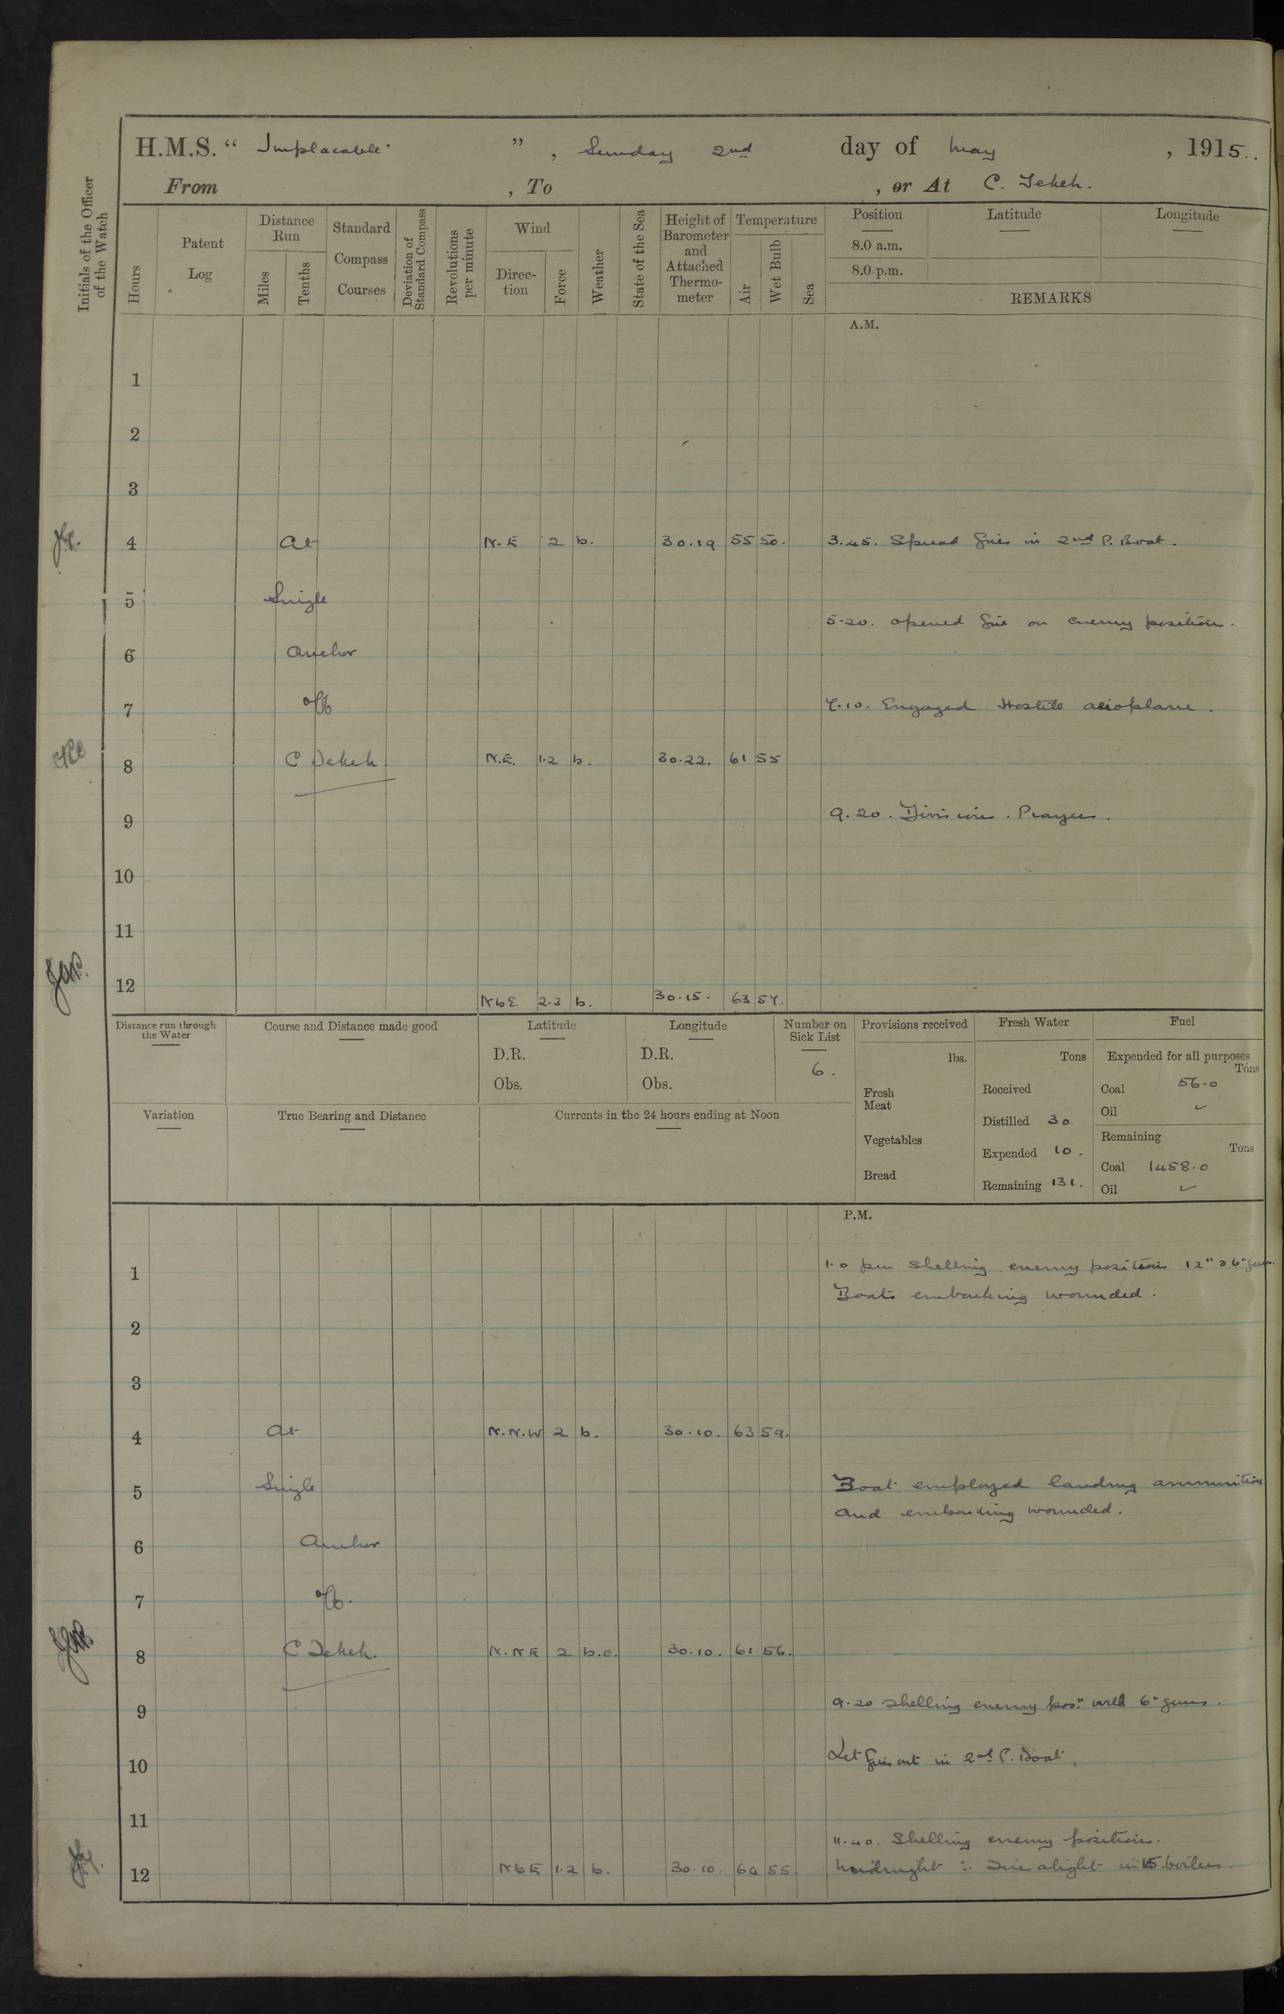 H.M.S. " Implacable " , Sunday 2nd day of May , 1915.
From , To , or At C. Tekeh.
Initials of the Officer of the Watch
Hours
Patent Log
Distance Run
Miles
Tenths
Standard Compass Courses
Deviation of Standard Compass
Revolutions per minute
Wind
Direction
Force
Weather
State of the Sea
Height of Barometer and Attached Thermometer
Temperature
Air
Wet Bulb
Sea
Position Latitude Longitude
8.0 a.m.
8.0 p.m.
REMARKS
A.M.
1
2
3
4 At N.E 2 b. 30.19 55 50. 3.45. Spread fires in 2nd P. Boat.
5 Single
5.20. opened fire on enemy position.
6 Anchor
7 off 7.10. Engaged Hostile aeroplane.
8 C Tekeh. N.E. 1.2 b. 30.22. 61 55
9 9.20. Divisions. Prayers.
10
11
12 NbE 2.3 b. 30.15. 63 57.
Distance run through the Water
Course and Distance made good
Latitude
D.R.
Obs.
Longitude
D.R.
Obs.
Number on Sick List
6.
Provisions received
lbs.
Fresh Meat
Vegetables
Bread
Fresh Water
Tons
Received
Distilled 30
Expended 10.
Remaining 131.
Fuel
Expended for all purposes
Tons
Coal 56.0
Oil ✓
Remaining
Tons
Coal 1458.0
Oil ✓
Variation
True Bearing and Distance
Currents in the 24 hours ending at Noon
P.M.
1 1.0 pm Shelling enemy position 12" & 6" guns.
Boats embarking wounded.
2
3
4 At N.N.W 2 b. 30.10. 63 59.
5 Single Boat employed landing ammunition
and embarking wounded.
6 Anchor
7 off.
8 C Tekeh. N.NE 2 b.c. 30.10. 61 56.
9 9.20 Shelling enemy posn with 6" guns.
10 Let fires out in 2nd P. Boat.
11
11.40. Shelling enemy position.
12 NbE 1.2 b. 30.10. 64 55. Midnight :- Fires alight in 15 boilers